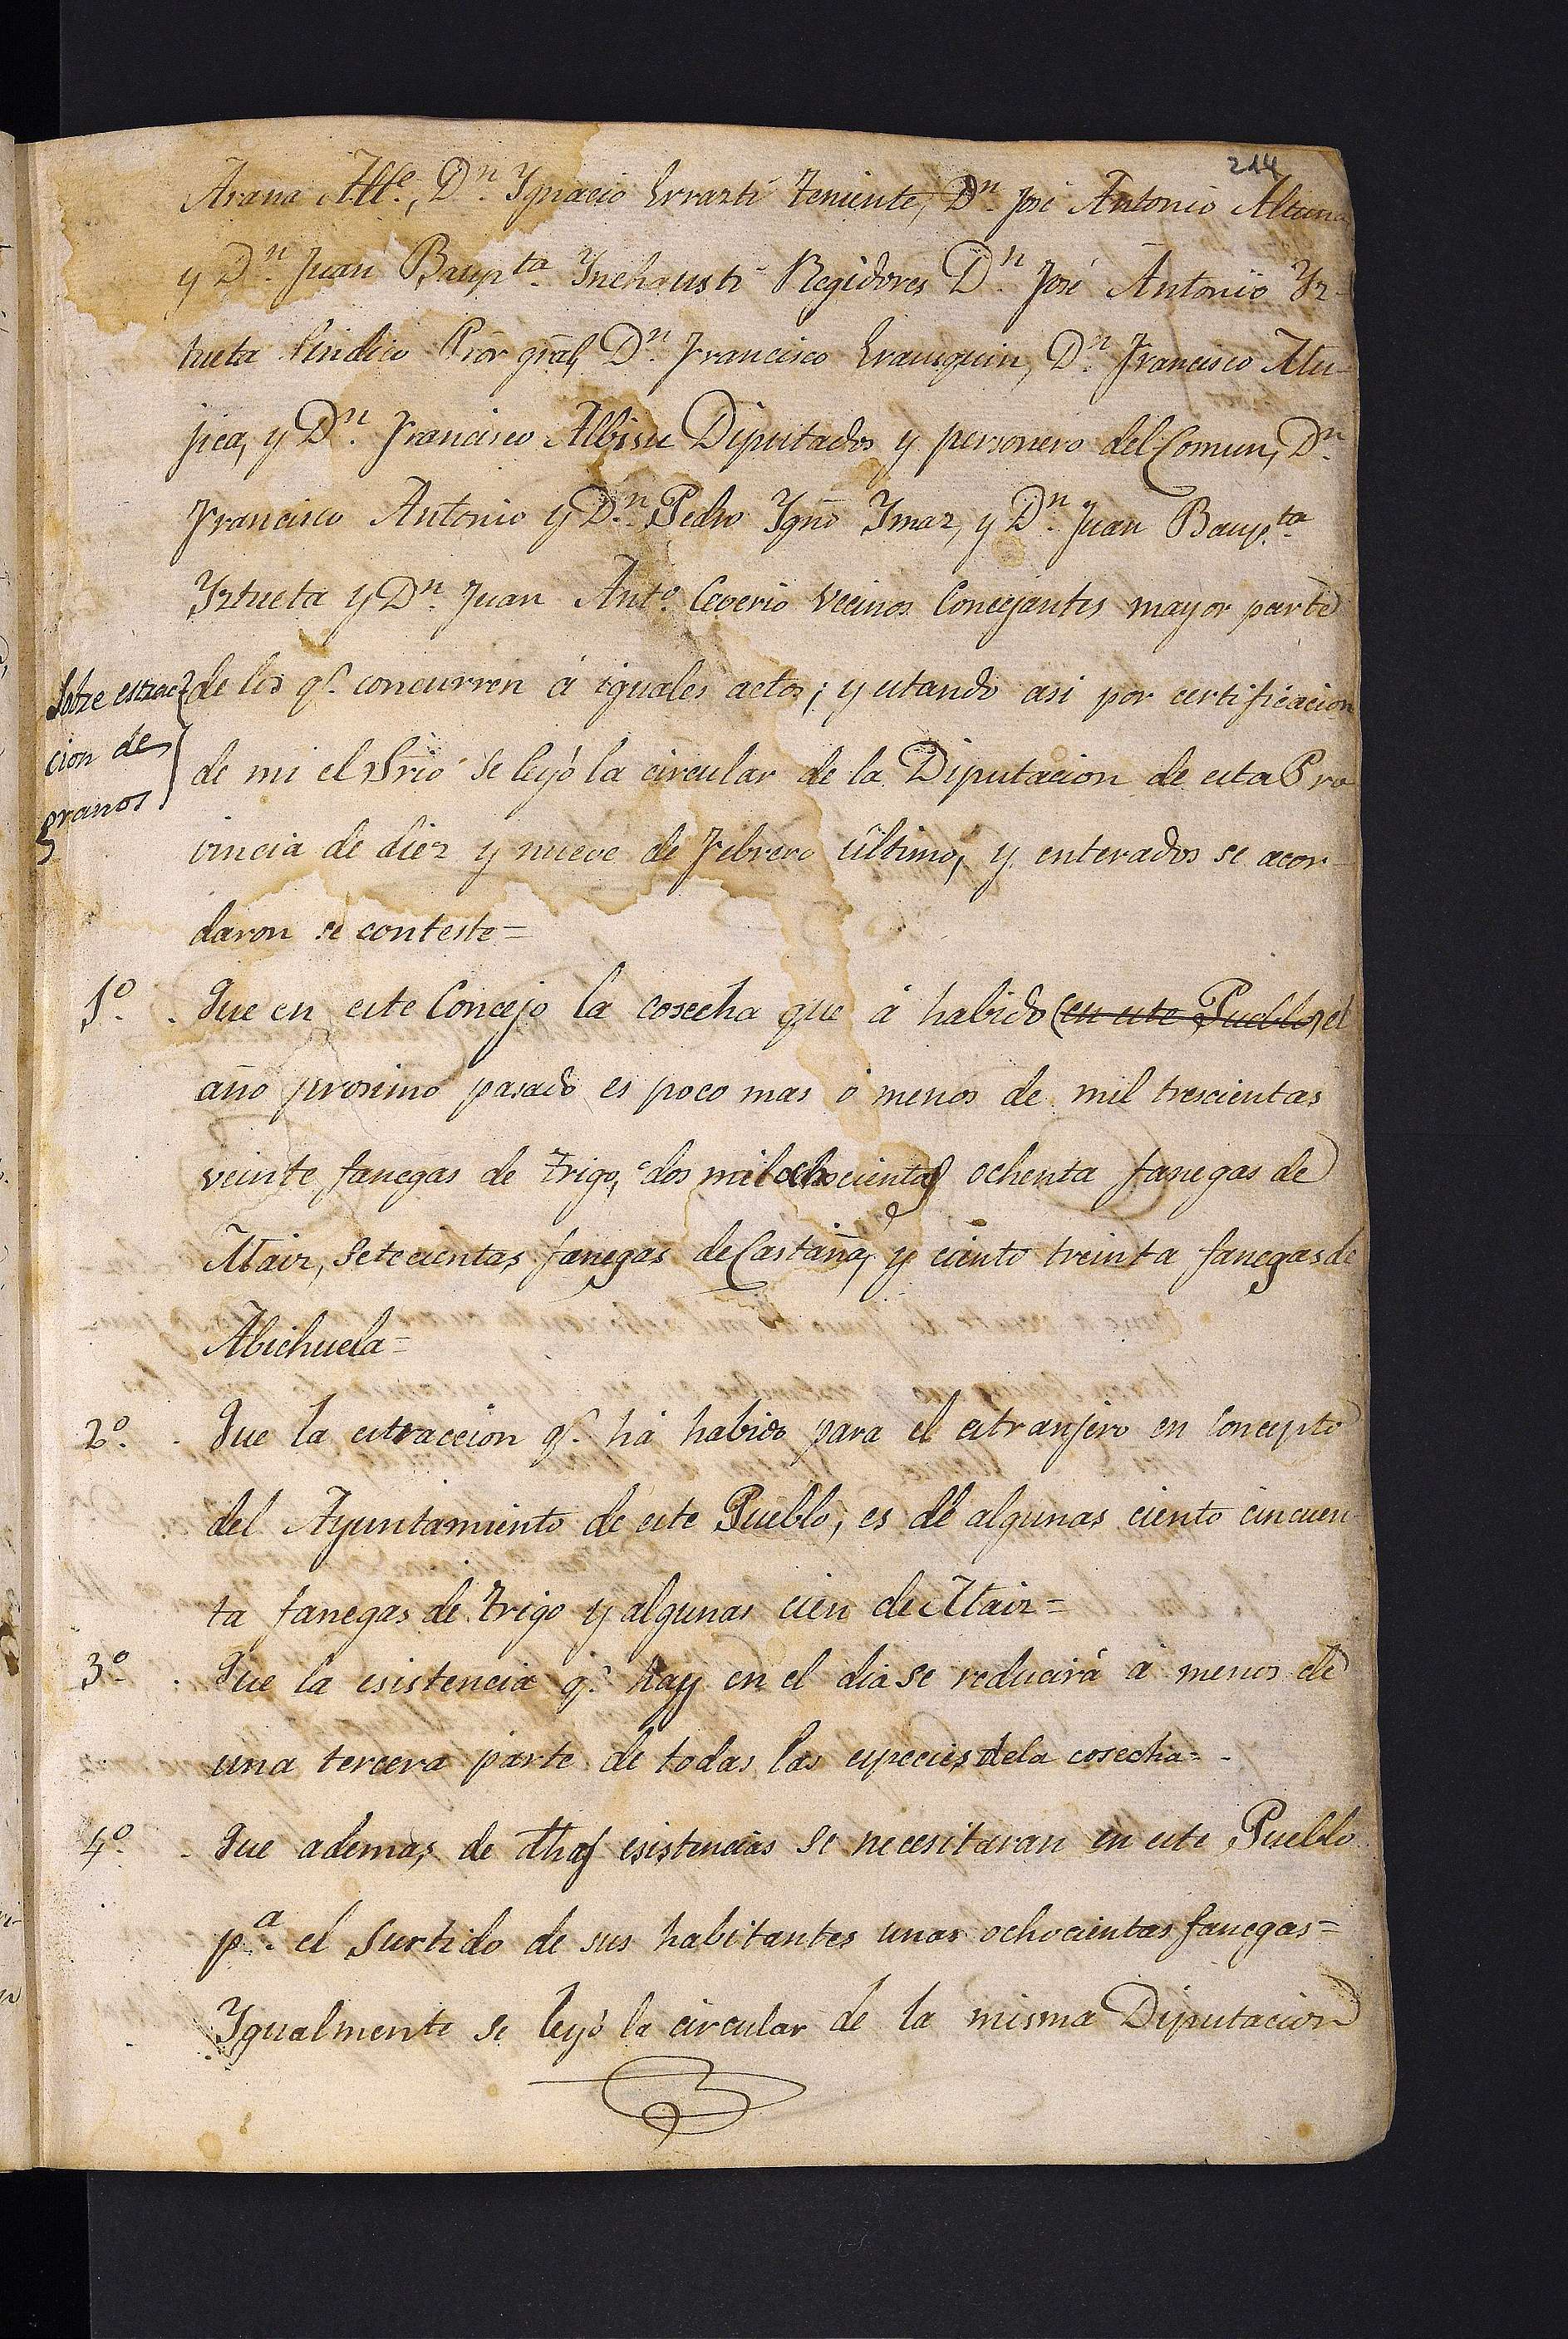 214
Arana Alle., Dn. Ygnacio Errazti Teniente, Dn. José Antonio Altuna
y Dn. Juan Baupta. Ynchausti Regidores Dn. José Antonio Yz-
tueta Sindico Pror gral, Dn. Francisco Erausquin, Dn. Francisco Mu-
jica, y Dn. Francisco Albisu Diputados y personero del Comun, Dn.
Francisco Antonio y Dn. Pedro Ygno Ymaz, y Dn. Juan Baupta.
Yztueta y Dn. Juan Anto. Ceverio vecinos Concejantes mayor parte
Sobre estrac-
cion de
granos
de los qe. concurren á iguales actos; y estando asi por certificacion
de mi el Srio se leyó la circular de la Diputacion de esta Pro
vincia de diez y nueve de Febrero último, y enterados se acor-
daron se conteste=
1º. Que en este Concejo la cosecha que á habido (en este Pueblo) el
año prosimo pasado es poco mas ó menos de mil trescientas
veinte fanegas de trigo, dos mil ochocientas ochenta fanegas de
Maiz, setecientas fanegas de Castaña, y ciento treinta fanegas de
Abichuela=
2º. Que la estraccion qe. há habido para el estranjero en concepto
del Ayuntamiento de este Pueblo, es de algunas ciento cincuen-
ta fanegas de trigo y algunas cien de Maiz=
3º. Que la esistencia qe. hay en el dia se reducirá á menos de
una tercera parte de todas las especies de la cosecha=
4º. Que ademas de dhas esistencias se necesitaran en este Pueblo
pa. el surtido de sus habitantes unas ochocientas fanegas=
Ygualmente se leyó la circular de la misma Diputacion